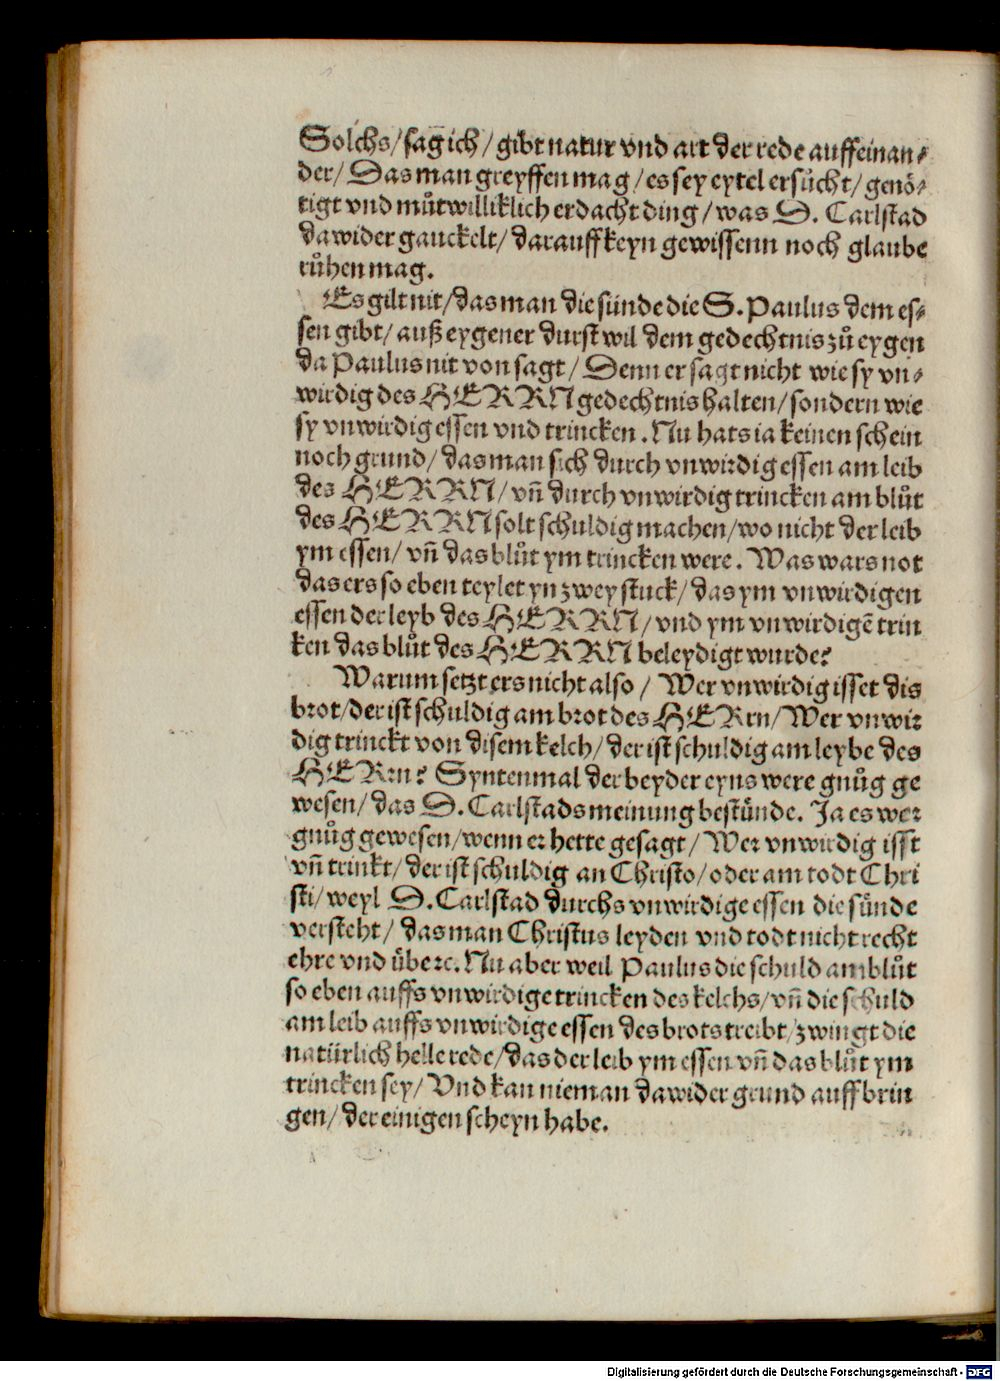 Solchs/ sag ich/ gibt natur vnd art der rede auffeinan⸗
der/ Das man greyffen mag/ es sey eytel ersůcht/ genö⸗
tigt vnd můtwilliklich erdacht ding/ was D. Carlstad
dawider gauckelt/ darauff keyn gewissenn noch glaube
růhen mag.
Es gilt nit/ das man die sünde die S. Paulus dem es⸗
sen gibt/ auß eygener durst wil dem gedechtnis zů eygen
da Paulus nit von sagt/ Denn er sagt nicht wie sy vn⸗
wirdig des HERRN gedechtnis halten/ sondern wie
sy vnwirdig essen vnd trincken. Nu hats ia keinen schein
noch grund/ das man sich durch vnwirdig essen am leib
des HERRN/ vn̄ durch vnwirdig trincken am blůt
des HERRN solt schuldig machen/ wo nicht der leib
ym essen/ vn̄ das blůt ym trincken were. Was wars not
das ers so eben teylet yn zwey stuck/ das ym vnwirdigen
essen der leyb des HERRN/ vnd ym vnwirdigē trin
ken das blůt des HERRN beleydigt wurde?
Warum setzt ers nicht also/ Wer vnwirdig isset dis
brot/ der ist schuldig am brot des HERrn/ Wer vnwir
dig trinckt von disem kelch/ der ist schuldig am leybe des
HERrn? Syntenmal der beyder eyns were gnůg ge
wesen/ das D. Carlstads meinung bestünde. Ja es wer
gnůg gewesen/ wenn er hette gesagt/ Wer vnwirdig isst
vn̄ trinkt/ der ist schuldig an Christo/ oder am todt Chri
sti/ weyl D. Carlstad durchs vnwirdige essen die sünde
versteht/ das man Christus leyden vnd todt nicht recht
ehre vnd übe ꝛc. Nu aber weil Paulus die schuld am blůt
so eben auffs vnwirdige trincken des kelchs/ vn̄ die schuld
am leib auffs vnwirdige essen des brots treibt/ zwingt die
natürlich helle rede/ das der leib ym essen vn̄ das blůt ym
trincken sey/ Vnd kan nieman dawider grund auff brin
gen/ der einigen scheyn habe.
Digitalisierung gefördert durch die Deutsche Forschungsgemeinschaft - DFG